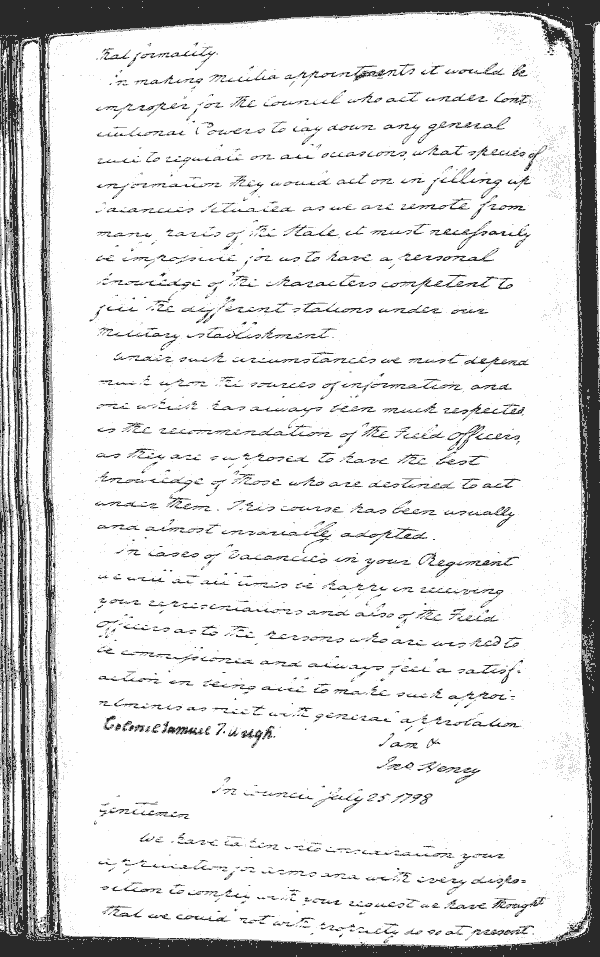 that formality.
In making militia appointments it would be
improper for the Council who act under Const
itutional Powers to lay down any general
rule to regulate on all occasions, what species of
information they would act on in filling up
Vacancies situated as we are remote from
many parts of the State, it must necessarily
be impossible for us to have a personal
knowledge of the characters competent to
fill the different stations under our
military establishment.
Under such circumstances we must depend
much upon the sources of information, and
one which has always been much respected
is the recommendation of the Field Officers,
as they are supposed to have the best
knowledge of those who are destined to act
under them. This course has been usually
and almost invariably adopted.
In cases of Vacancies in your Regiment
we will at all times be happy in receiving
your representations and also of the Field
officers as to the persons who are wished to
be commissioned and always feel a satisf-
action in being able to make such appoi-
ntments as meet with general approbation
Colonel Samuel T. Wright.
I am &
Jno Henry
In Council July 25 1798
Gentlemen
We have taken into consideration your
application for arms and with every dispo-
sition to comply with your request we have thought
that we could not with propriety do so at present.